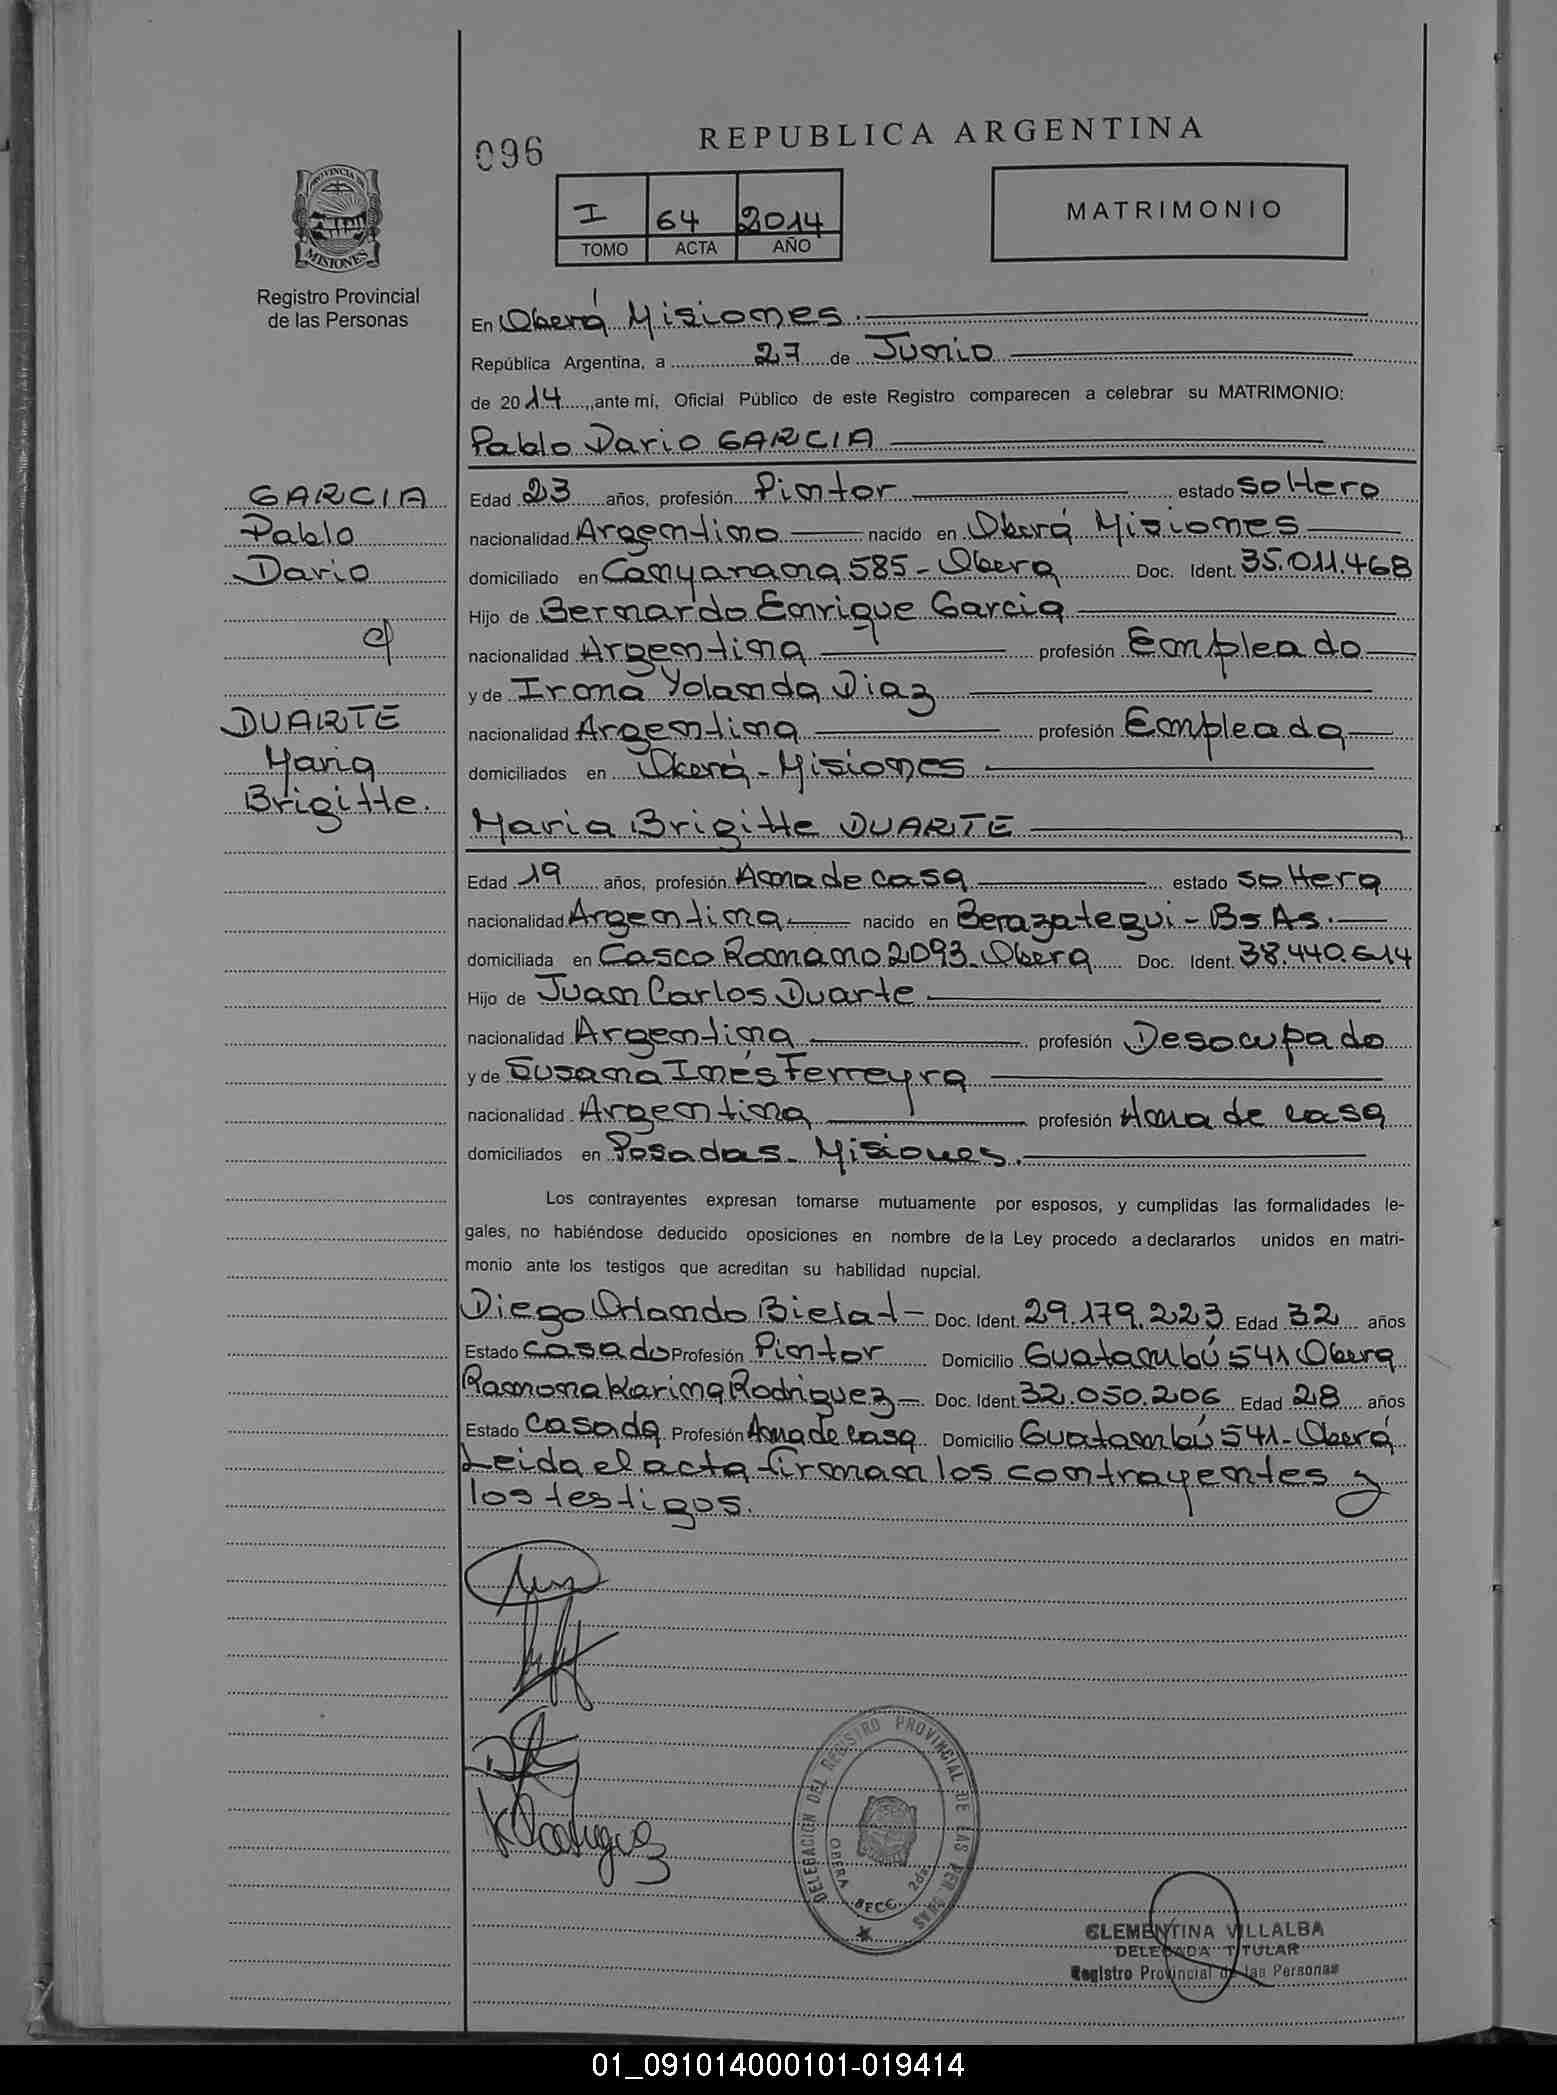 096
REPUBLICA ARGENTINA
I 64 2014
TOMO ACTA AÑO
MATRIMONIO
PROVINCIA DE
MISIONES
Registro Provincial
de las Personas
En Oberá Misiones.
República Argentina, a 27 de Junio
de 2014, ante mí, Oficial Público de este Registro comparecen a celebrar su MATRIMONIO:
Pablo Dario GARCIA
GARCIA
Pablo
Dario
c/
DUARTE
Maria
Brigitte.
Edad 23 años, profesión Pintor estado soltero
nacionalidad Argentino nacido en Oberá Misiones
domiciliado en 585 - Obera Doc. Ident. 35.011.468
Hijo de Bernardo Enrique Garcia
nacionalidad Argentina profesión Empleado
y de Irma Yolanda Diaz
nacionalidad Argentina profesión Empleada
domiciliados en Oberá - Misiones
Maria Brigitte DUARTE
Edad 19 años, profesión Ama de casa estado soltera
nacionalidad Argentina nacido en Berazategui - Bs As.
domiciliada en Casco Romano 2093 - Obera Doc. Ident. 38.440.614
Hijo de Juan Carlos Duarte
nacionalidad Argentina profesión Desocupado
y de Susana Inés Ferreyra
nacionalidad Argentina profesión Ama de casa
domiciliados en Posadas - Misiones.
Los contrayentes expresan tomarse mutuamente por esposos, y cumplidas las formalidades le-
gales, no habiéndose deducido oposiciones en nombre de la Ley procedo a declararlos unidos en matri-
monio ante los testigos que acreditan su habilidad nupcial.
Diego Orlando Bielat - Doc. Ident. 29.179.223 Edad 32 años
Estado Casado Profesión Pintor Domicilio Guatambú 541 Obera
Ramona Karina Rodriguez - Doc. Ident. 32.050.206 Edad 28 años
Estado Casada Profesión Ama de casa Domicilio Guatambú 541 - Oberá
Leida el acta firman los contrayentes y
los testigos.
KRodriguez
DELEGACION DEL REGISTRO PROVINCIAL DE LAS PERSONAS
OBERA SECC. 2da
CLEMENTINA VILLALBA
DELEGADA TITULAR
Registro Provincial de las Personas
01_091014000101-019414